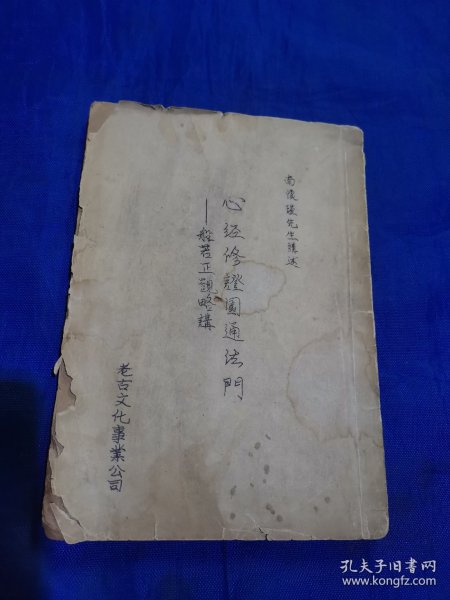 南懷瑾先生講述
心經修證圓通法門
—般若正觀略講
老古文化事業公司
孔夫子旧书网
www.kongfz.com